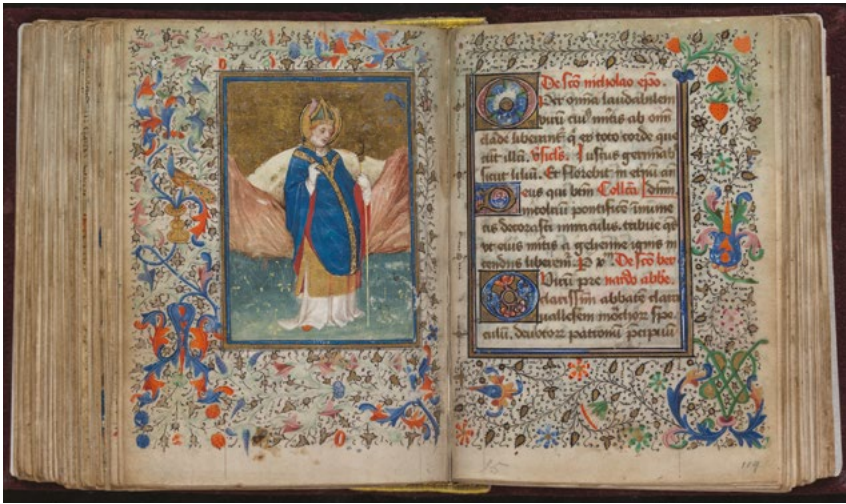 De sco nicholao epo.
Per omnia laudabilem
virū eiꝰ mitis ab omi
clade liberant̄ q̄ ex toto corde que
rūt illū. Vsicls. Iustus germīab
sicut liliū. Et florebit in etnū an
eus qui btm Collcā
nicolaū pontificē inume
ris decorasti miraculis. tribue qs
vt eius mitis a gehenne ignis in
cendiis liberem̄. P x De sco ber
Virū pre nardo abbe.
clarissim abbate clara
uallesem
culū. patronū perpiuū
119